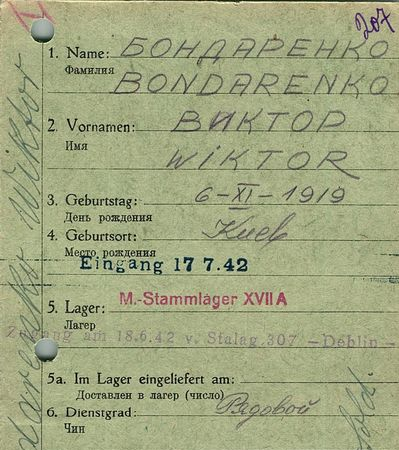 207
1. Name: БОНДАРЕНКО
Фамилия BONDARENKO
2. Vornamen: ВИКТОР
Имя WiKTOR
3. Geburtstag: 6-XI-1919
День рождения
4. Geburtsort: Киев
Место рождения
Eingang 17 7.42
M.-Stammlager XVII A
5. Lager:
Лагер
Zugang am 18.6.42 v. Stalag 307 -Deblin-
5a. Im Lager eingeliefert am:
Доставлен в лагер (число)
6. Dienstgrad: Рядовой
Чин
Wiktor
Sold.